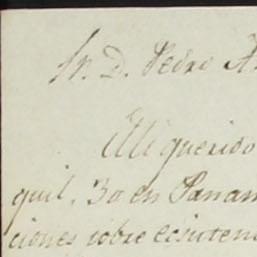 Sr. D. Pedro A
Mi querido
quil, 30 en Panam
ciones sobre